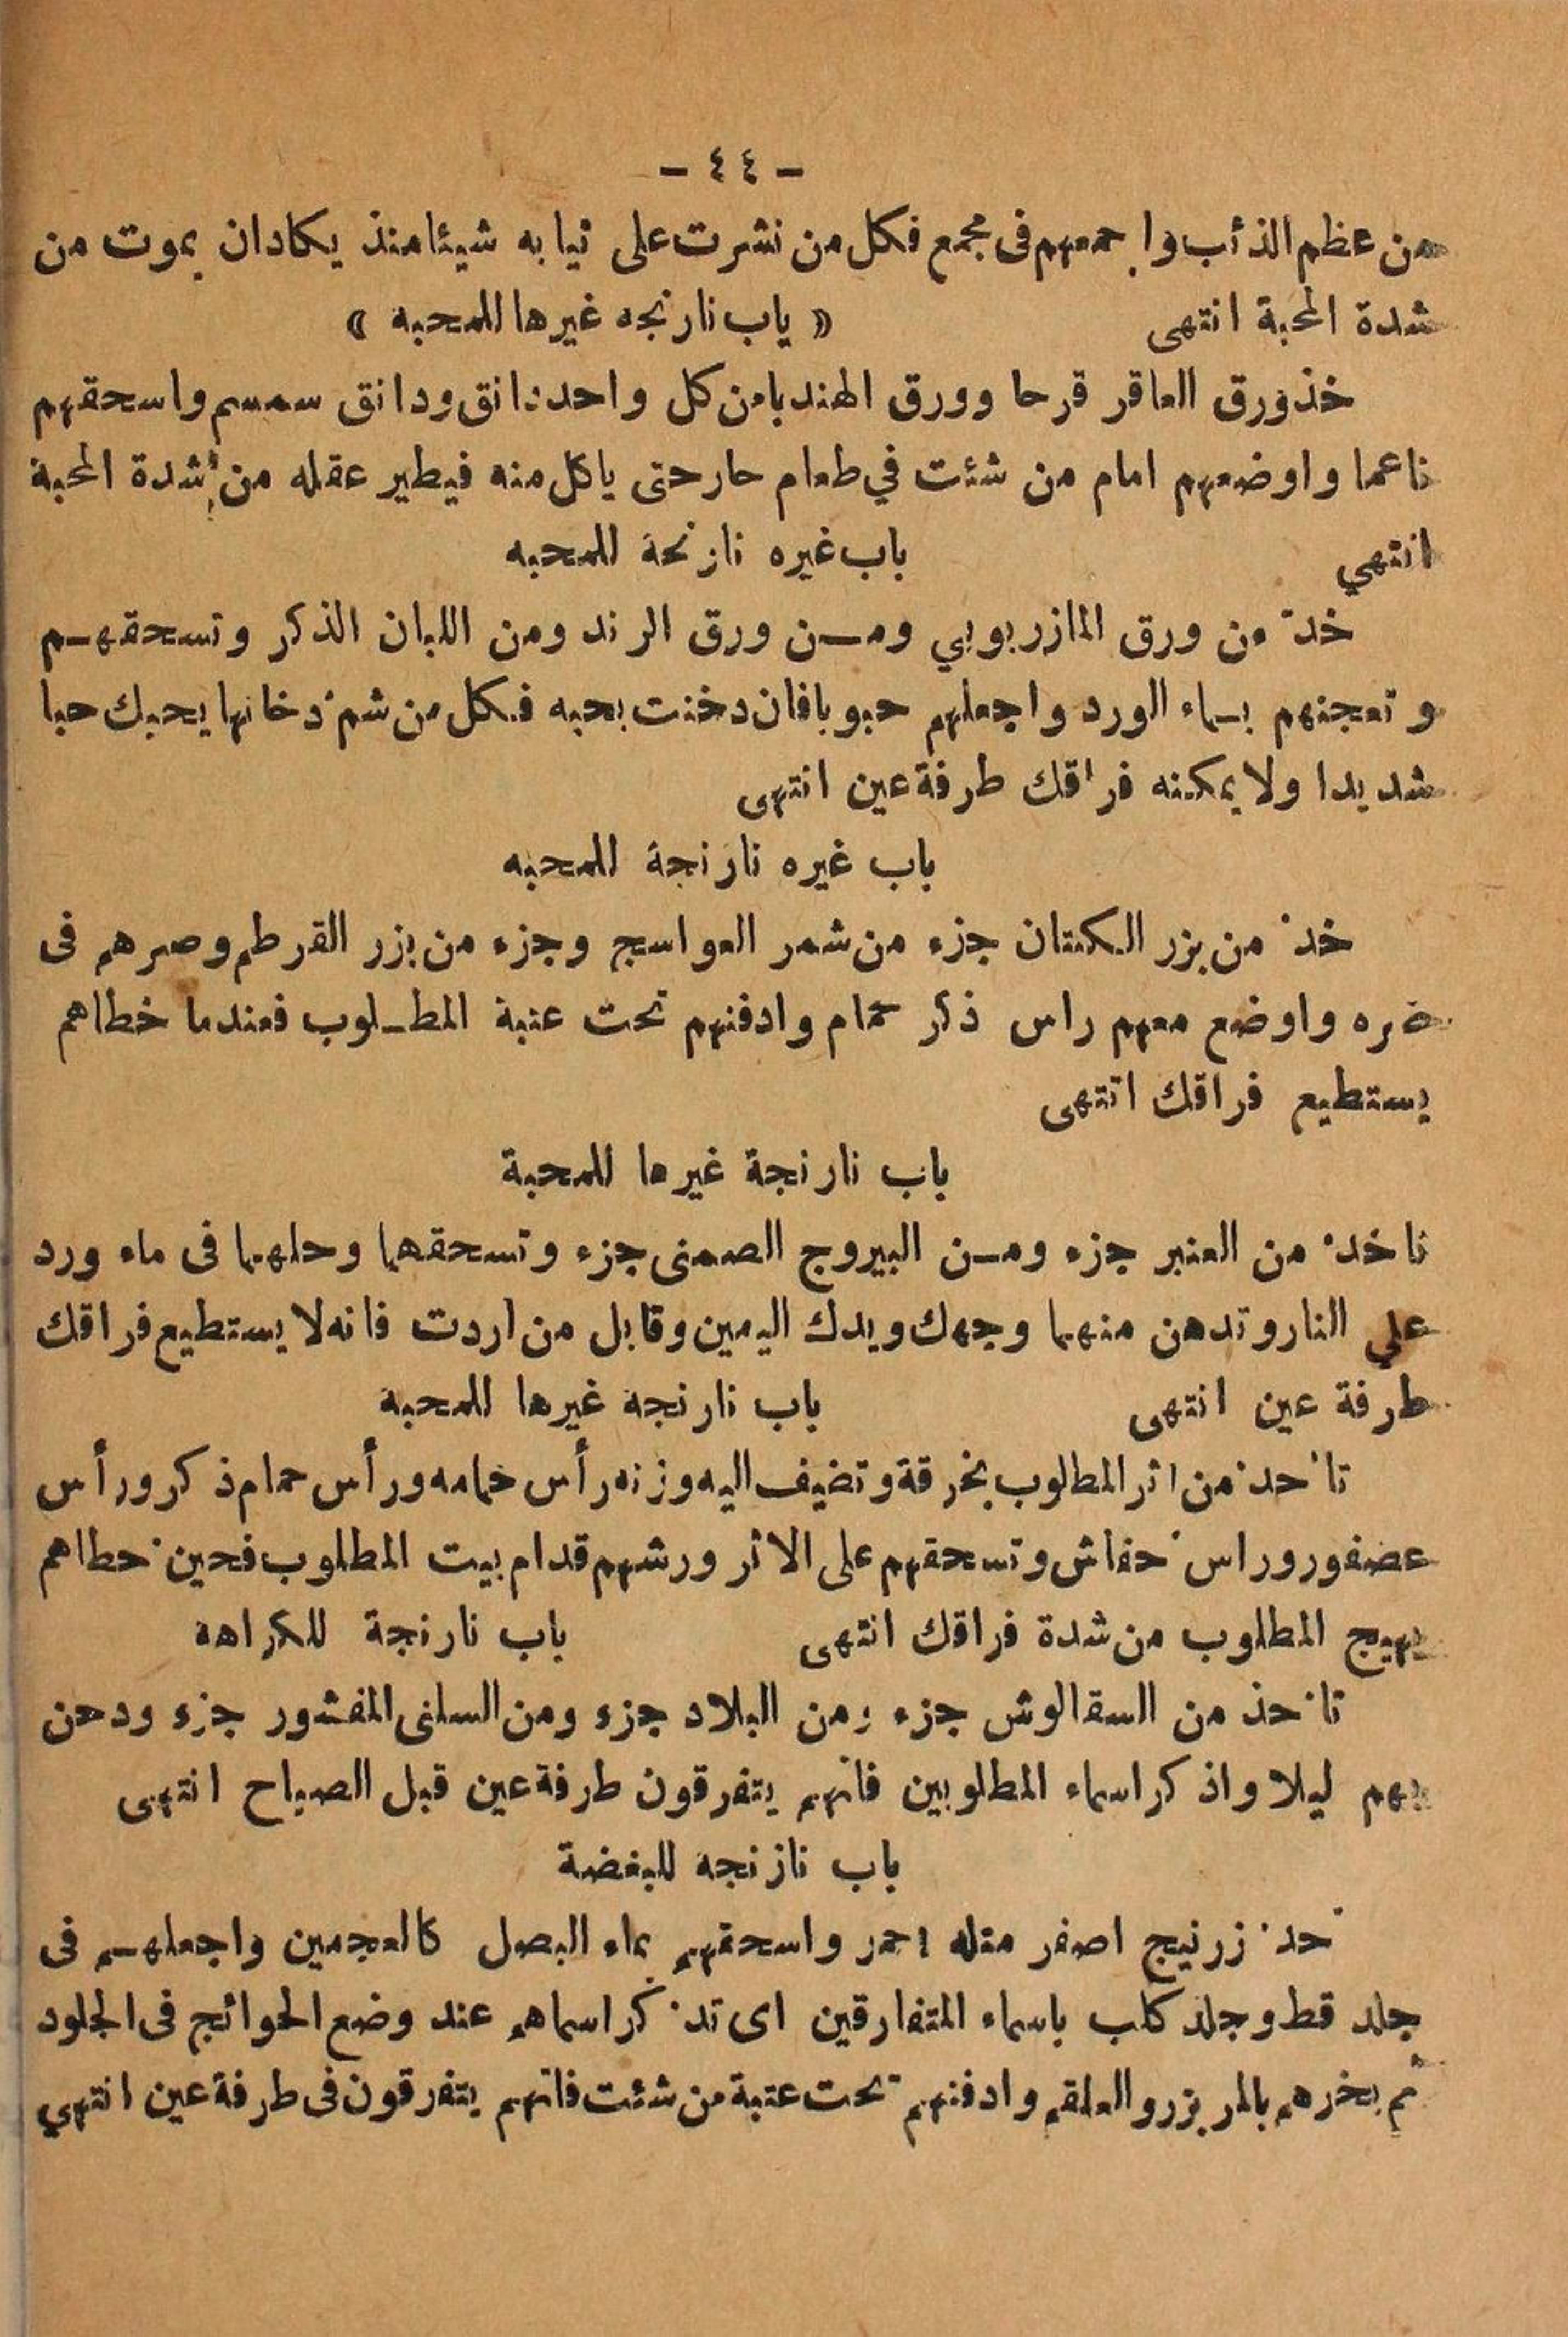 - ٤٤ -
من عظم الذئب واجمعهم فى مجمع فكل من نشرت على ثيابه شيئا منذ يكادان يموت من
شدة المحبة انتهى « ياب نارنجه غيرها للمحبه »
خذ ورق العاقر قرحا وورق الهندبا من كل واحد دانق ودانق سمسم واسحقهم
ناعما واوضعهم امام من شئت في طعام حار حتى ياكل منه فيطير عقله من شدة المحبة
انتهي باب غيره نارنجة للمحبه
خذ من ورق المازربوبي ومـن ورق الرند ومن اللبان الذكر وتسحقهـم
وتعجنهم بـماء الورد واجعلهم حبوبا فان دخنت بحبه فكل من شم دخانها يحبك حبا
شديدا ولا يمكنه فراقك طرفة عين انتهى
باب غيره نارنجة للمحبه
خذ من بزر الكتان جزء من شمر العواسج وجزء من بزر القرطم وصرهم فى
صره واوضع معهم راس ذكر حمام وادفنهم تحت عتبة المطـلوب فعندما خطاهم
يستطيع فراقك انتهى
باب نارنجة غيرها للمحبة
ناخذ من العنبر جزء ومـن البيروج الصمنى جزء وتسحقهما وحلهما فى ماء ورد
علي النار وتدهن منهما وجهك ويدك اليمين وقابل من اردت فانه لا يستطيع فراقك
طرفة عين انتهى باب نارنجة غيرها للمحبة
تاخذ من اثر المطلوب بخرقة وتضيف اليه وزنه رأس خمامه ورأس حمام ذكر ورأس
عصفور وراس خفاش وتسحقهم على الاثر ورشهم قدام بيت المطلوب فحين خطاهم
يهيج المطلوب من شدة فراقك انتهى باب نارنجة للكراهة
تاخذ من السقالوش جزء ومن البلاد جزء ومن السلنى المفشور جزء ودخن
بهم ليلا واذكر اسماء المطلوبين فانهم يتفرقون طرفة عين قبل الصباح انتهى
باب نازنجة للبغضة
خذ زرنيج اصفر مثله احمر واسحقهم بماء البصل كالعجمين واجعلهـم فى
جلد قط وجلد كلب باسماء المتفارقين اى تذكر اسماهم عند وضع الحوائج فى الجلود
ثم بخرهم بالمر بزرو العلقم وادفنهم تحت عتبة من شئت فانهم يتفرقون فى طرفة عين انتهي